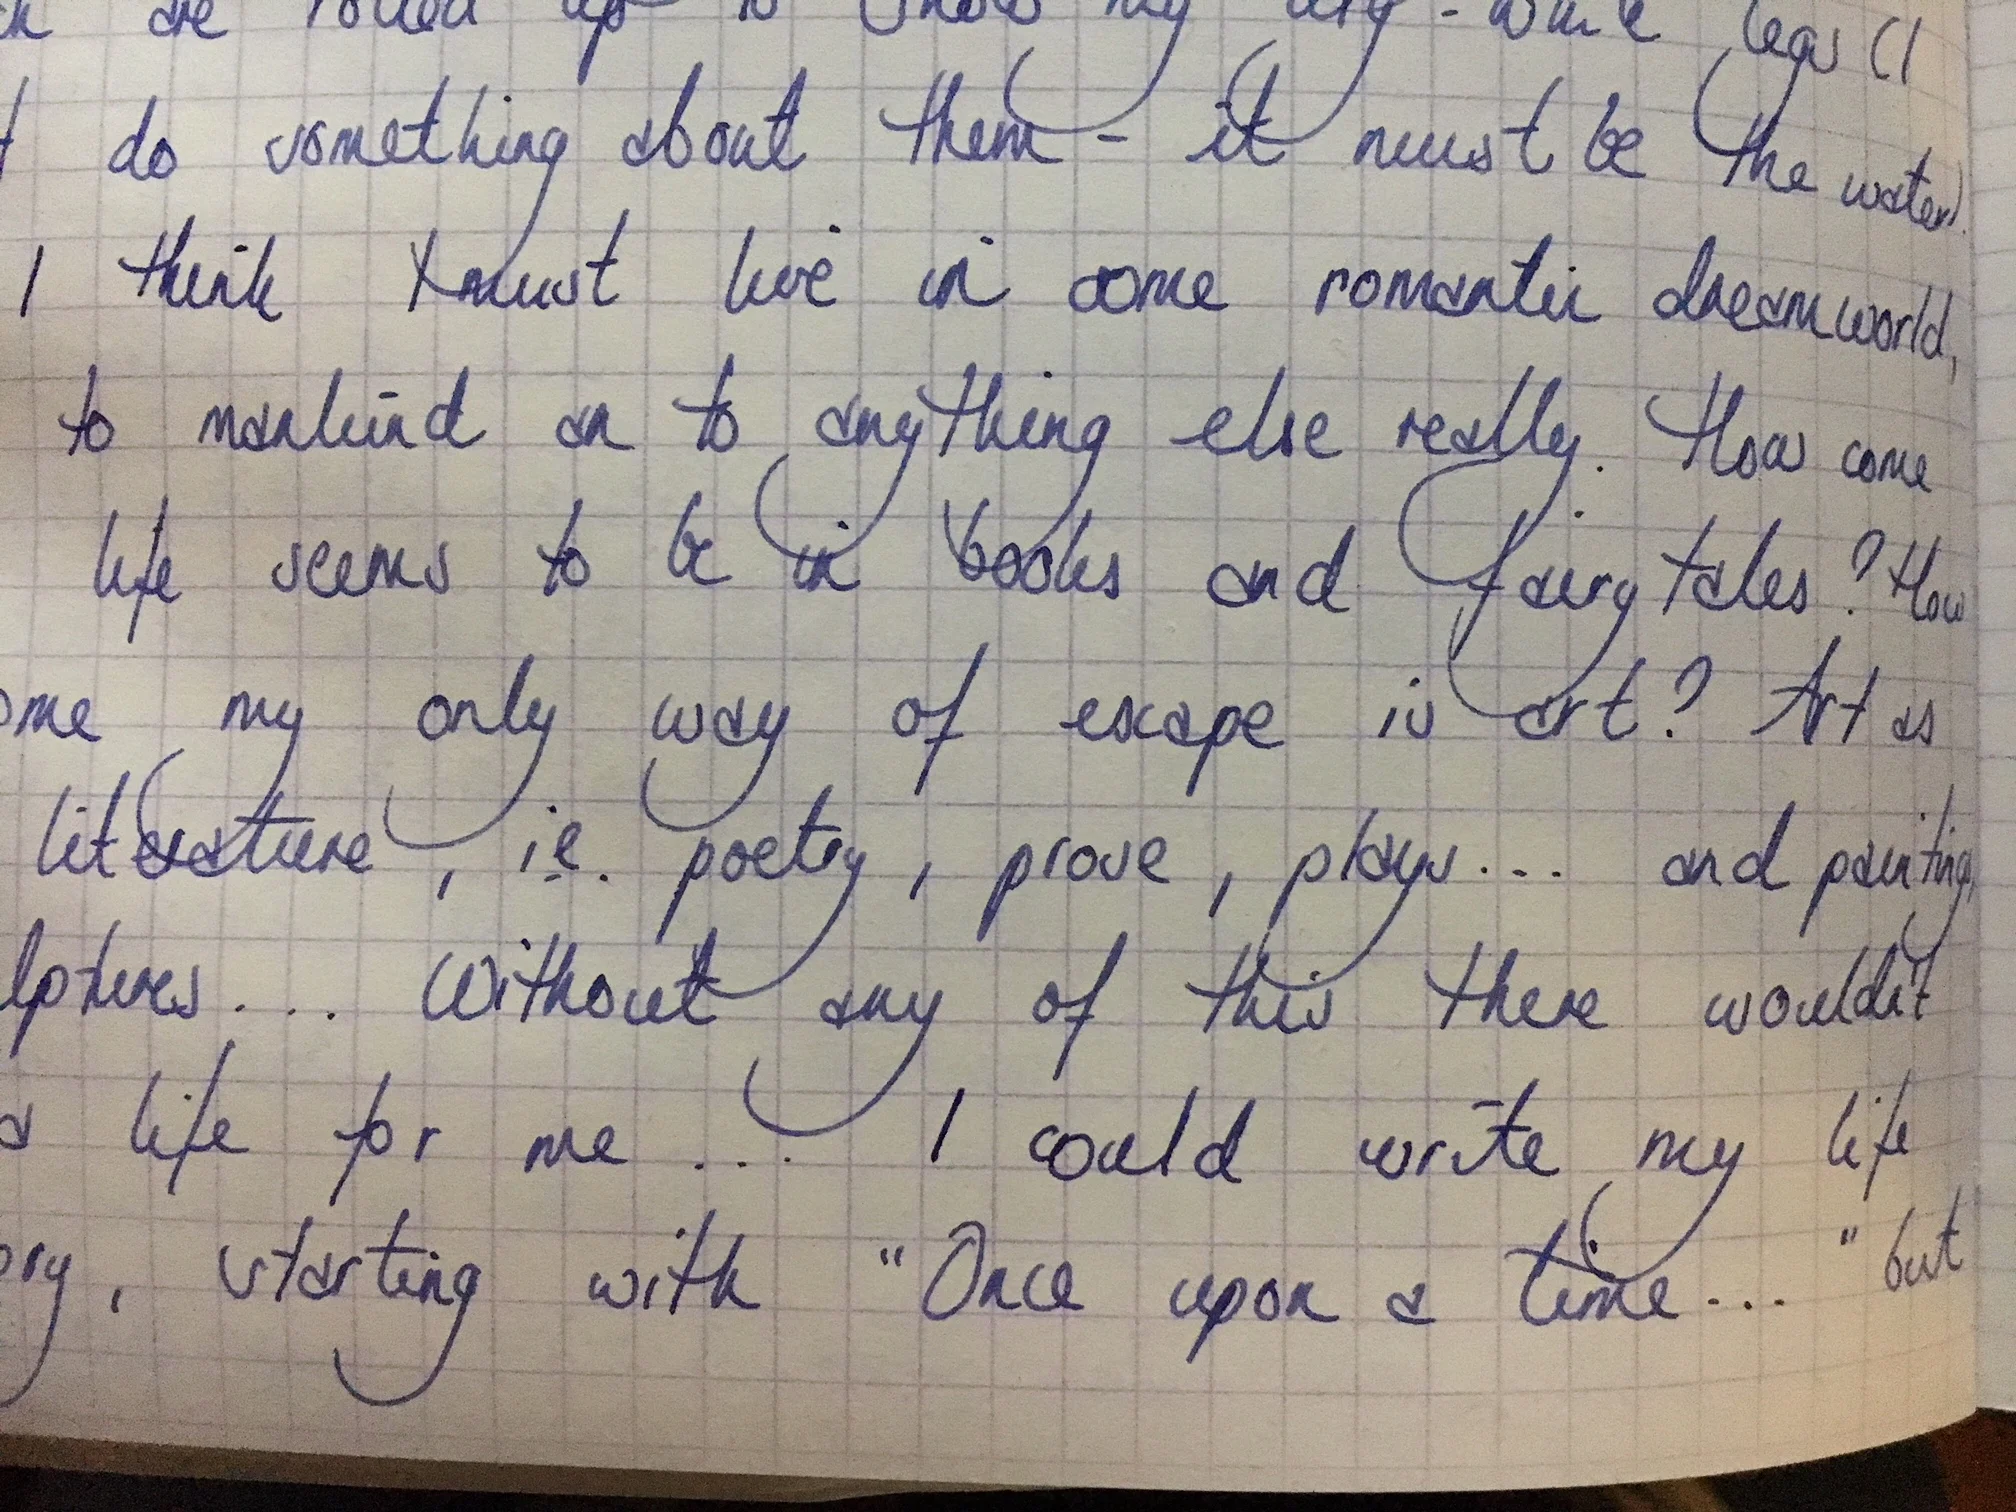 are rolled up to show my very-white legs (I
do something about them - it must be the water).
I think I must live in some romantic dreamworld,
to mankind an to anything else really. How come
life seems to be in books and fairy tales? How
ome my only way of escape is art? Art as
literature, ie. poetry, prose, plays... and painting,
lptures.... Without any of this there wouldn't
a life for me... I could write my life
ory, starting with "Once upon a time..." but